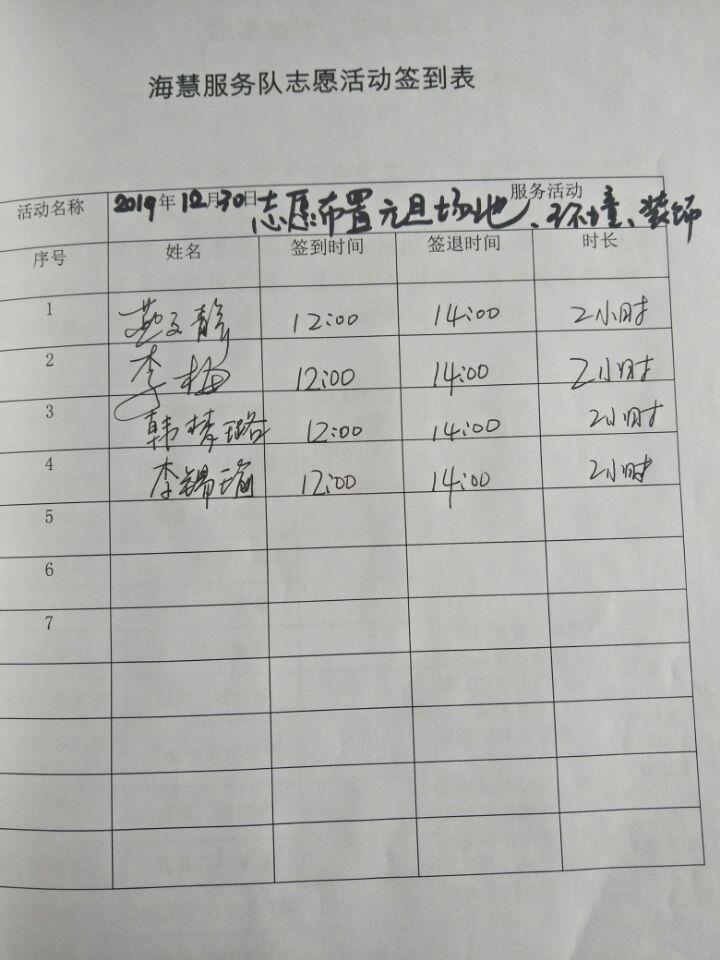 海慧服务队志愿活动签到表
活动名称 2019年12月30日志愿布置元旦场地、环境、装饰 服务活动
序号 姓名 签到时间 签退时间 时长
1 静 12:00 14:00 2小时
2 李梅 12:00 14:00 2小时
3 韩梦璐 12:00 14:00 2小时
4 李锡瑜 12:00 14:00 2小时
5
6
7